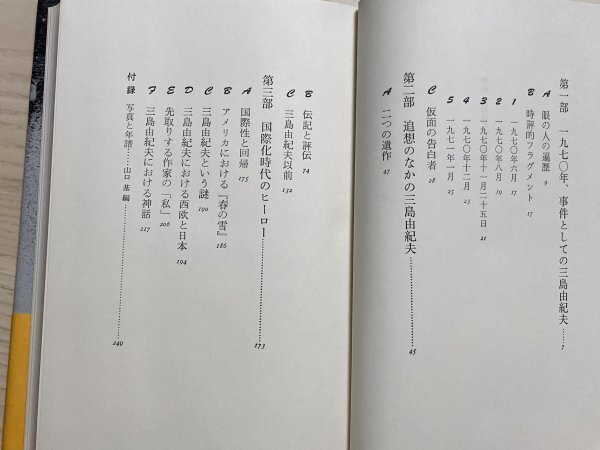 第一部 一九七〇年、事件としての三島由紀夫……7
A 眼の人の遍歴 9
B 時評的フラグメント 17
1 一九七〇年六月 17
2 一九七〇年八月 19
3 一九七〇年十一月二十五日 21
4 一九七〇年十二月 23
5 一九七一年一月 25
C 仮面の告白者 28
第二部 追想のなかの三島由紀夫……45
A 二つの遺作 47
B 伝記と評伝 74
C 三島由紀夫以前 132
第三部 国際化時代のヒーロー……173
A 国際性と回帰 175
B アメリカにおける『春の雪』 186
C 三島由紀夫という謎 190
D 三島由紀夫における西欧と日本 194
E 先取りする作家の「私」 206
F 三島由紀夫における神話 217
付録 写真と年譜……山口 基 編……249